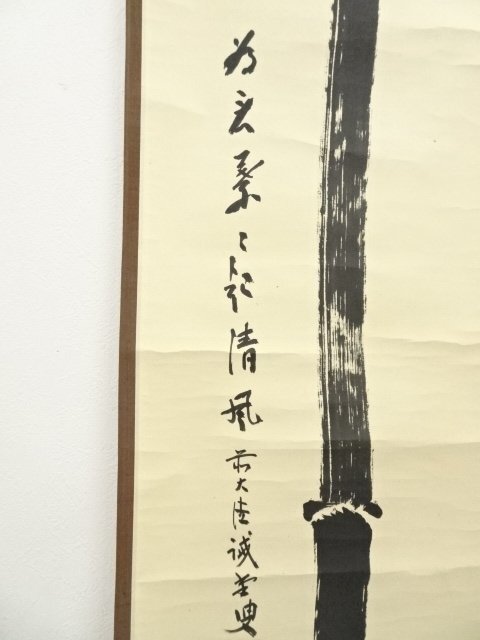 為君葉々起清風
前大徳誠堂叟